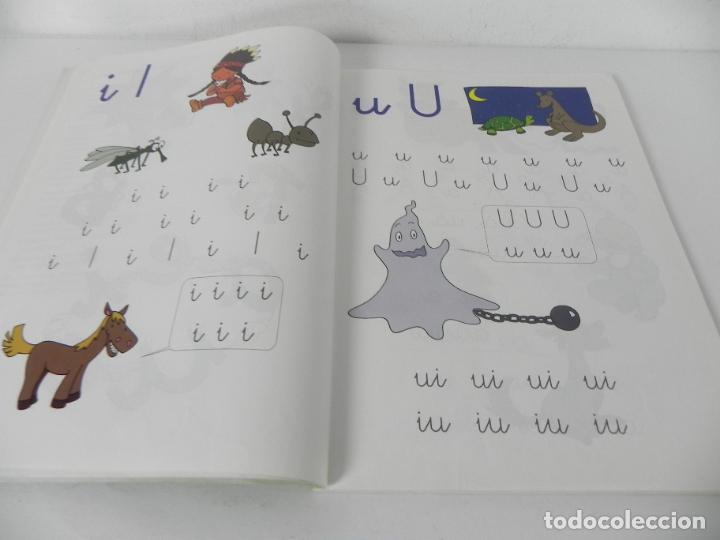 i I
i i i i
i i i i i i
i I i I i I i
i i i i
i i i
u U
u u u u u u u
U u U u U u U u
U U U
u u u
ui ui ui ui
iu iu iu iu
todocoleccion.net